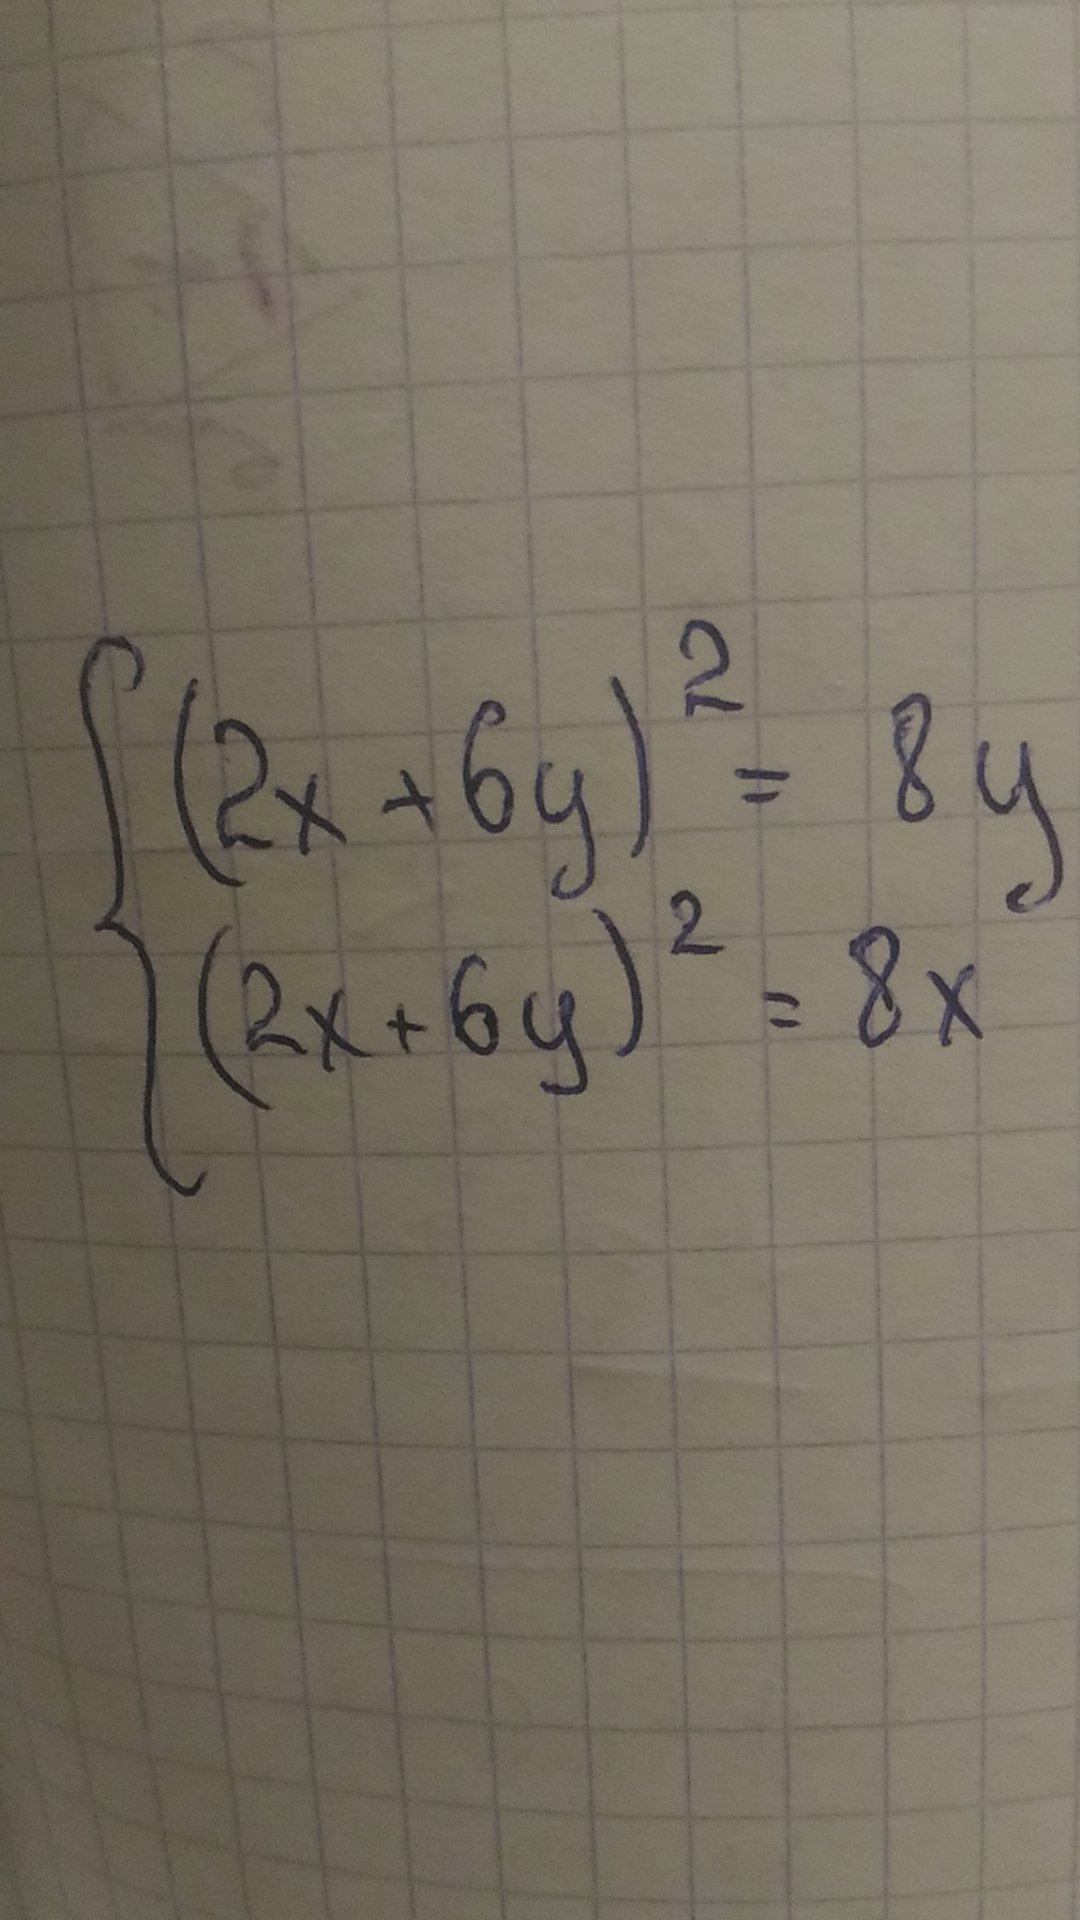 (2x+6y)² = 8y
(2x+6y)² = 8x